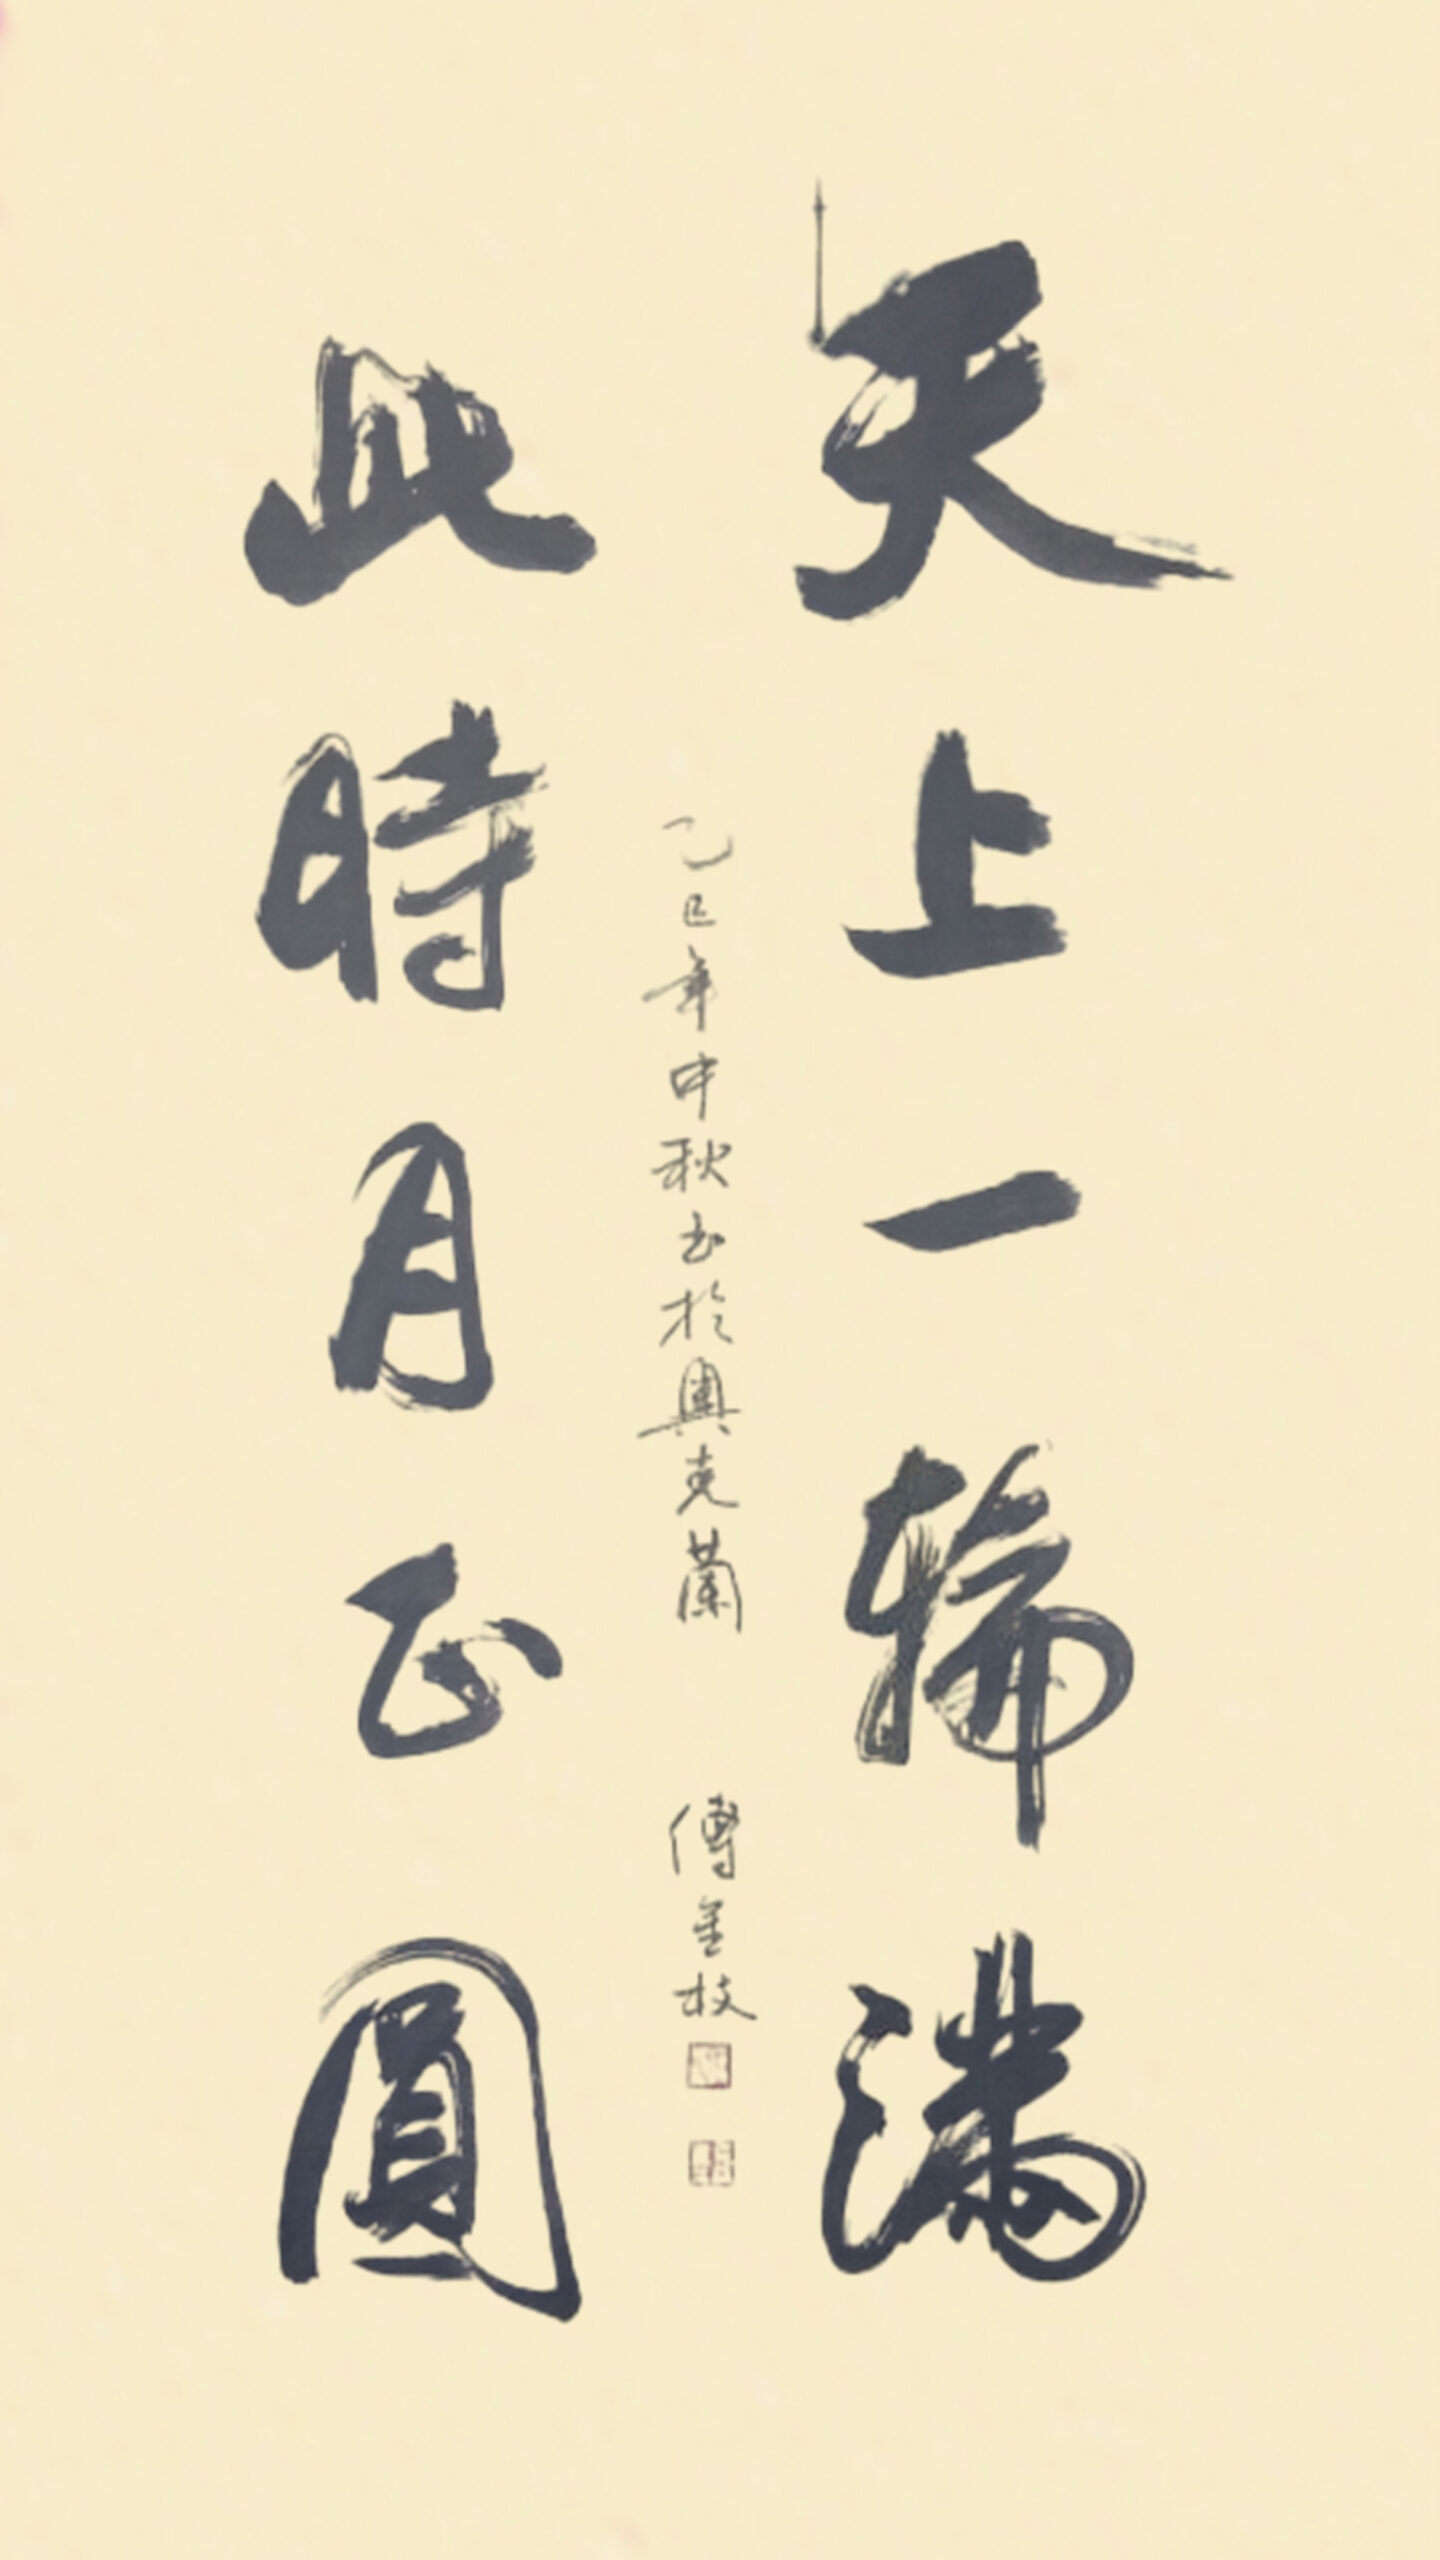 天上一輪滿
此時月正圓
乙巳年中秋书於奧克蘭
傅金枝